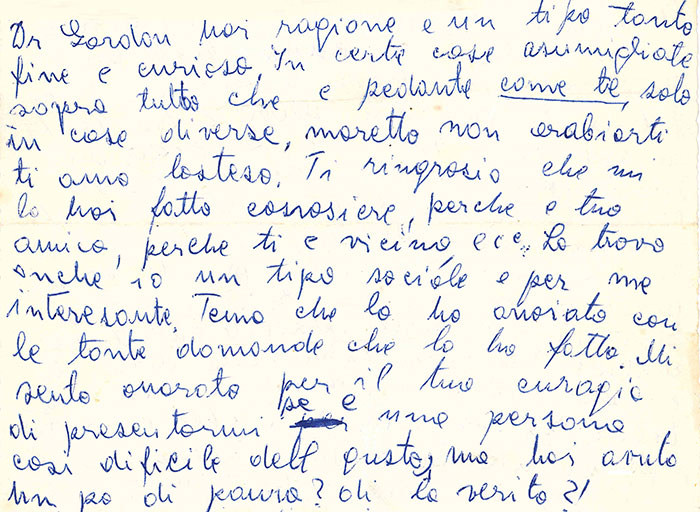 Dr Gordon hai ragione e un tipo tanto
fine e curioso. In certe cose asumigliate
sopra tutto che e pedante come te, solo
in cose diverse, moretto non arabiarti
ti amo losteso. Ti ringrasio che mi
lo hai fatto conosiere, perche e tuo
amico, perche ti e vicino, ecc.. Lo trovo
anche io un tipo sociale e per me
interesante. Temo che lo ho anoiato con
le tante domande che lo ho fatto. Mi
sento onorato per il tuo curagio
di presentarmi se e una persona
cosi dificile dell gusto, ma hai avuto
un po di paura? di la verito?!